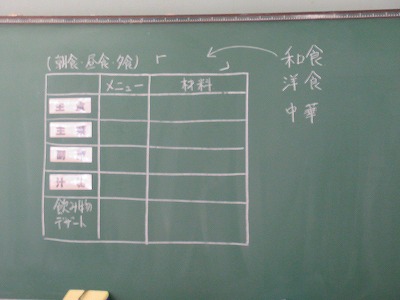 (朝食・昼食・夕食)「 」
和食
洋食
中華
メニュー 材料
主食
主菜
副菜
汁物
飲み物
デザート